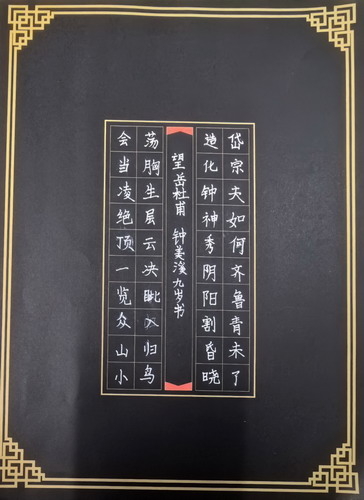 岱宗夫如何齐鲁青未了
造化钟神秀阴阳割昏晓
望岳杜甫 钟美溪九岁书
荡胸生层云决眦入归鸟
会当凌绝顶一览众山小